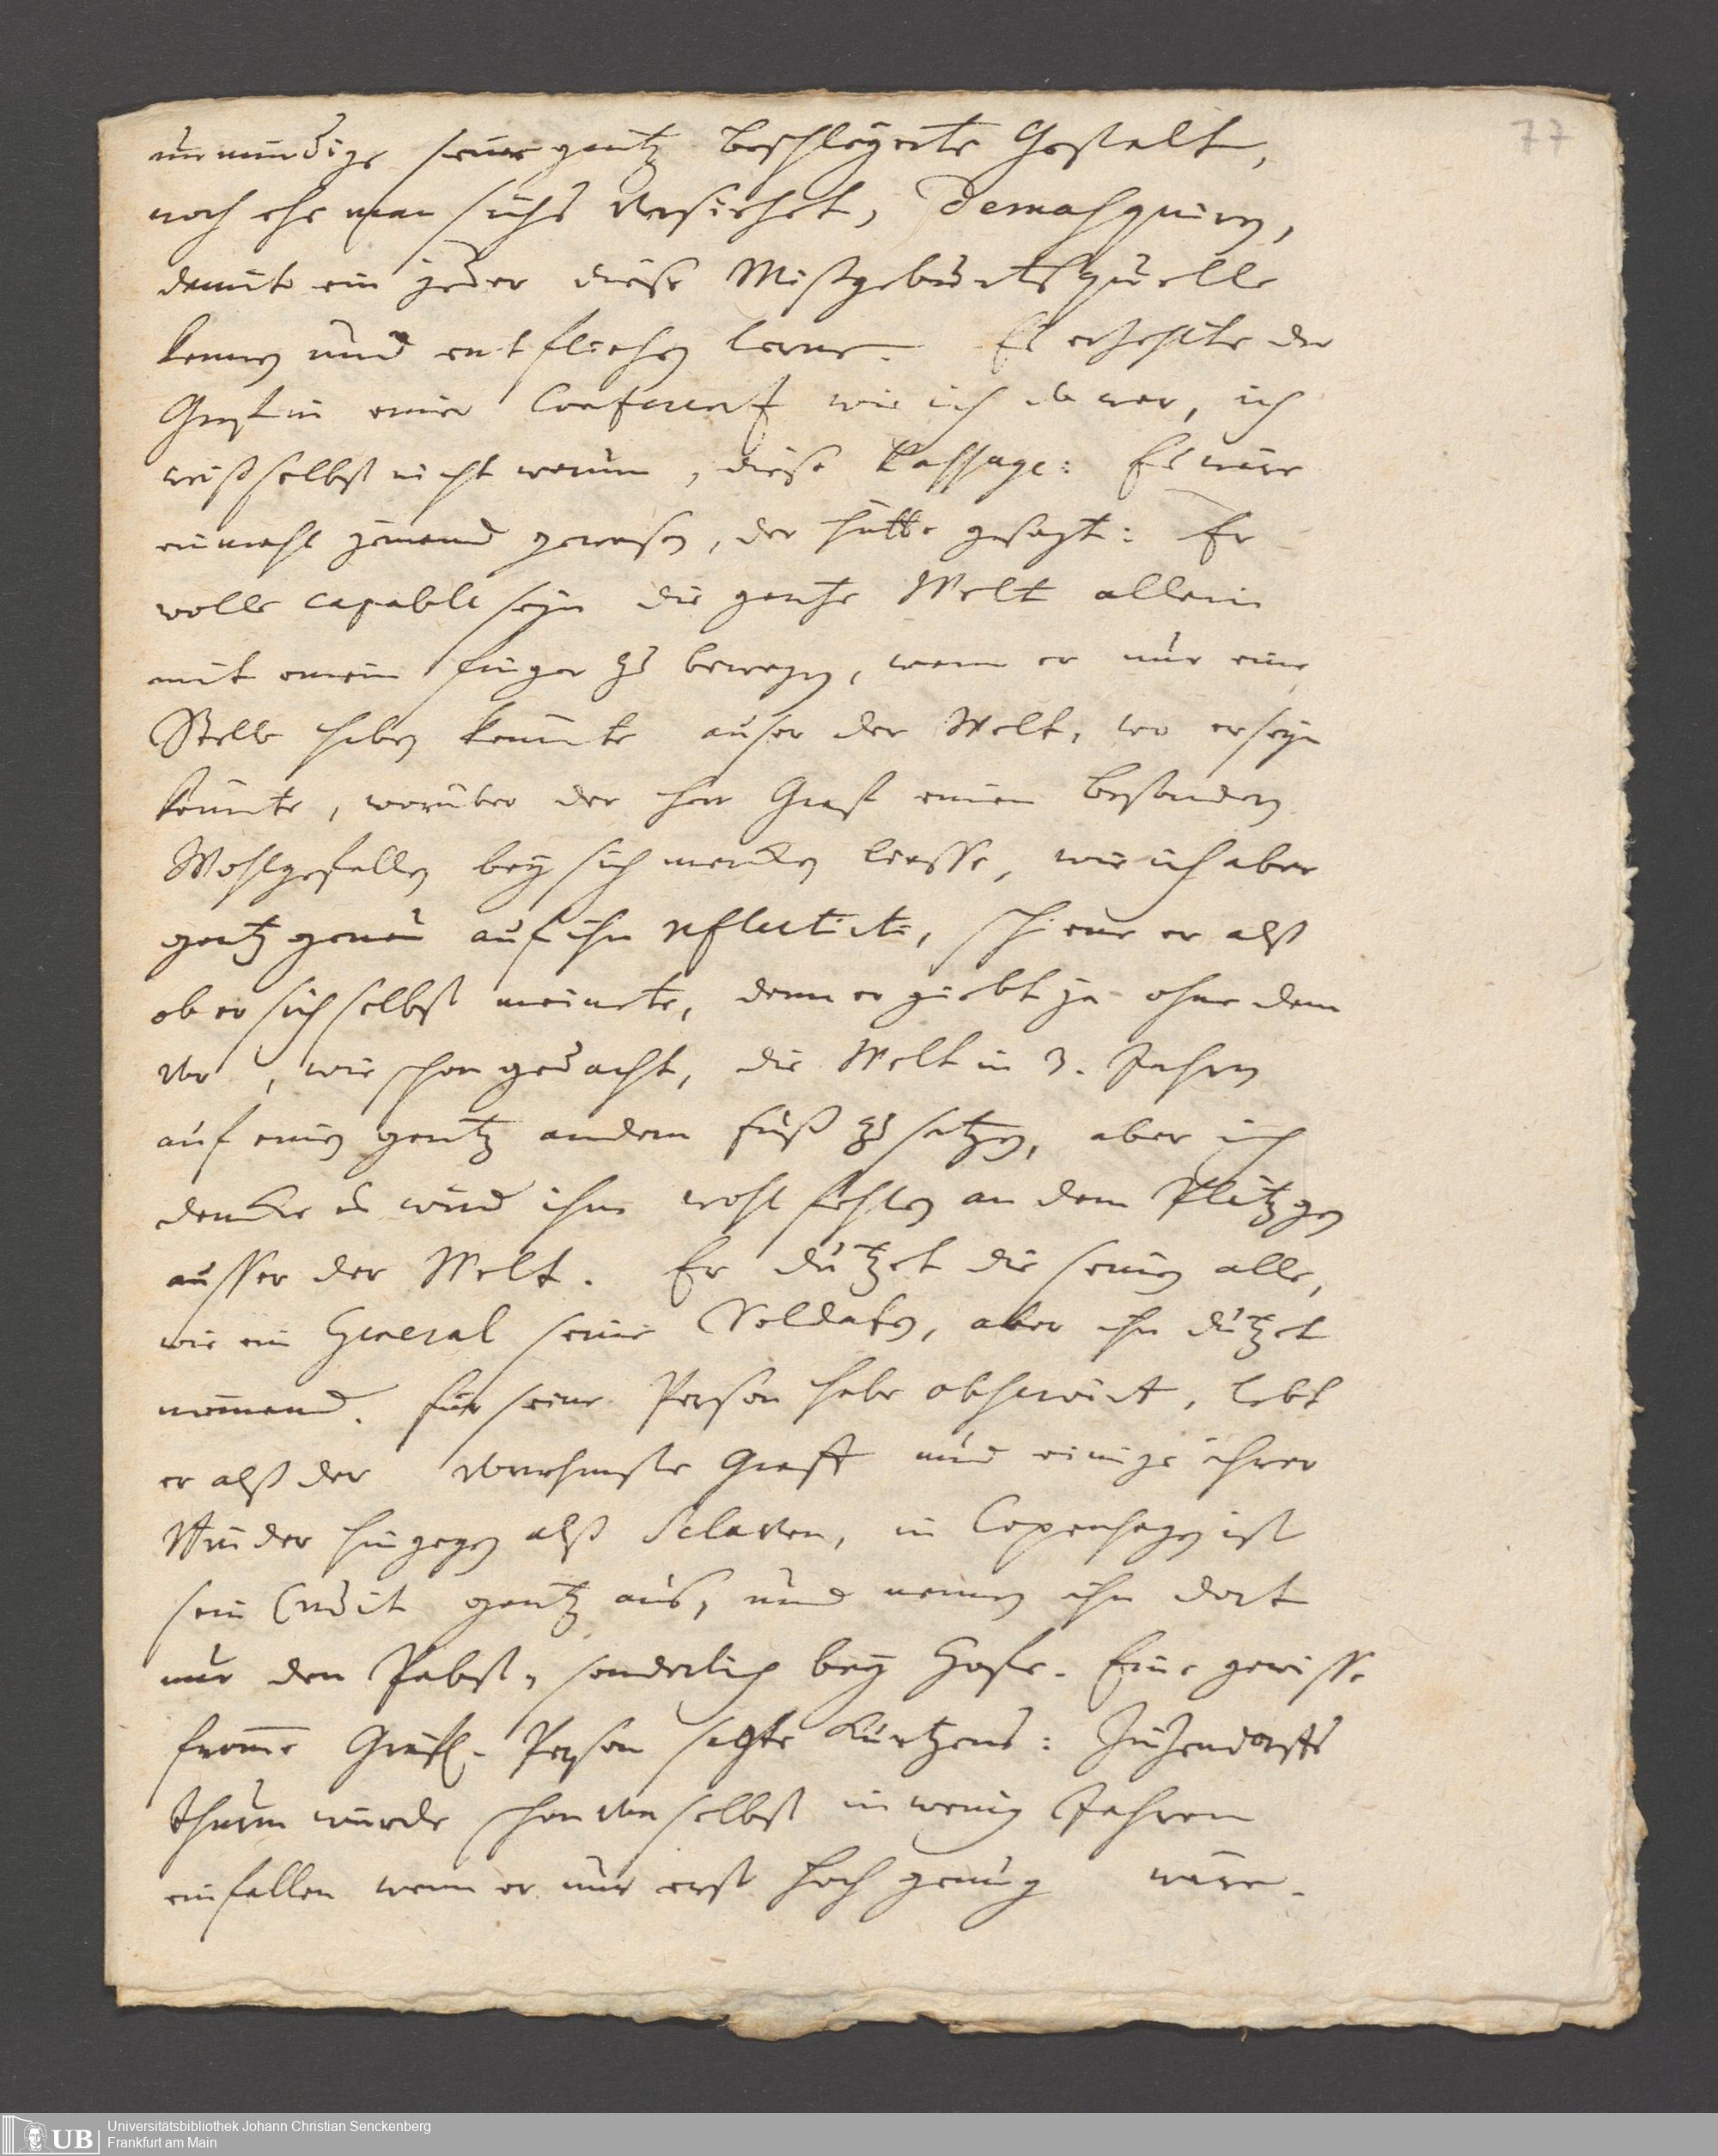 77
unmündige seine gantz beschleyerte Gestalt,
noch ehe man sichs versiehet, demasquiren,
damit ein jeder diese Mißgeburthsquelle
kennen und entfliehen lerne. Es erzehlte der
Graf in einer Conferentz wie ich da war, ich
weiß selbst nicht warum, diese Passage: Es wäre
einmahl jemand gewesen, der hätte gesagt: Er
wolle capable seyn die gantze Welt allein
mit einem finger zu bewegen, wenn er nur eine
Stelle haben könnte auser der Welt, wo er seyn
könnte, worüber der Herr Graf einen besondern
Wohlgefallen bey sich mercken liesse, wie ich aber
gantz genau auf ihn reflectirte, schiene er alß
ob er sich selbst meinete, denn er giebt ja ohne dem
vor, wie schon gedacht, die Welt in 3. Jahren
auf einen gantz andern fuß zu setzen, aber ich
dencke es wird ihm wohl fehlen an dem Plätzgen
ausser der Welt. Er dutzet die seinen alle,
wie ein General seine Soldaten, aber ihn dutzet
niemand. für seine Person habe observirt, lebt
er alß der vornehmste Graff und einige ihrer
Kinder hingegen alß Sclaven, in Copenhagen ist
sein Credit gantz aus, und nennen ihn dort
nur den Pabst, sonderlich bey Hofe. Eine gewisse
fromme Gräfl. Person sagte kürtzens: Zinzendorffs
thurm würde schon von selbst in wenig Jahren
einfallen wenn er nur erst hoch genug wäre.
Universitätsbibliothek Johann Christian Senckenberg
Frankfurt am Main
UB